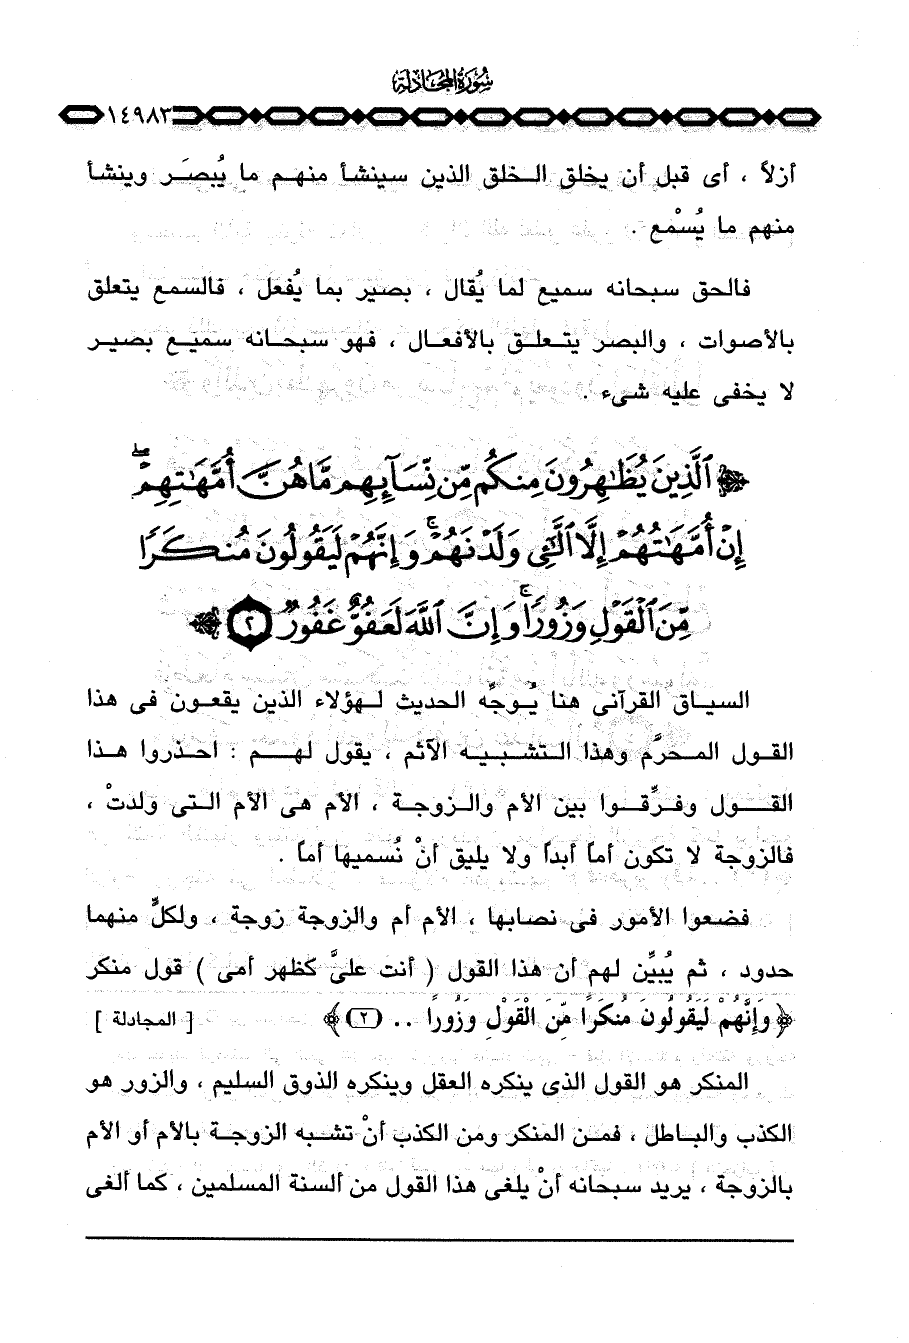 سُورَةُ المُجَادلَة
١٤٩٨٣
أزلاً ، أى قبل أن يخلق الخلق الذين سينشأ منهم ما يُبصَر وينشأ
منهم ما يُسْمع .
فالحق سبحانه سميع لما يُقال ، بصير بما يُفعل ، فالسمع يتعلق
بالأصوات ، والبصر يتعلق بالأفعال ، فهو سبحانه سميع بصير
لا يخفى عليه شىء .
﴿ ٱلَّذِينَ يُظَٰهِرُونَ مِنكُم مِّن نِّسَآئِهِم مَّا هُنَّ أُمَّهَٰتِهِمْ ۖ
إِنْ أُمَّهَٰتُهُمْ إِلَّا ٱلَّٰٓـِٔى وَلَدْنَهُمْ ۚ وَإِنَّهُمْ لَيَقُولُونَ مُنكَرًا
مِّنَ ٱلْقَوْلِ وَزُورًا ۚ وَإِنَّ ٱللَّهَ لَعَفُوٌّ غَفُورٌ ٢ ﴾
السياق القرآنى هنا يُوجِّه الحديث لهؤلاء الذين يقعون فى هذا
القول المحرَّم وهذا التشبيه الآثم ، يقول لهم : احذروا هذا
القول وفرِّقوا بين الأم والزوجة ، الأم هى الأم التى ولدتْ ،
فالزوجة لا تكون أماً أبداً ولا يليق أنْ نُسميها أماً .
فضعوا الأمور فى نصابها ، الأم أم والزوجة زوجة ، ولكلٍّ منهما
حدود ، ثم يُبيِّن لهم أن هذا القول ( أنت علىَّ كظهر أمى ) قول منكر
﴿ وَإِنَّهُمْ لَيَقُولُونَ مُنكَرًا مِّنَ الْقَوْلِ وَزُورًا .. (٢) ﴾ [ المجادلة ]
المنكر هو القول الذى ينكره العقل وينكره الذوق السليم ، والزور هو
الكذب والباطل ، فمن المنكر ومن الكذب أنْ تشبه الزوجة بالأم أو الأم
بالزوجة ، يريد سبحانه أنْ يلغى هذا القول من ألسنة المسلمين ، كما ألغى